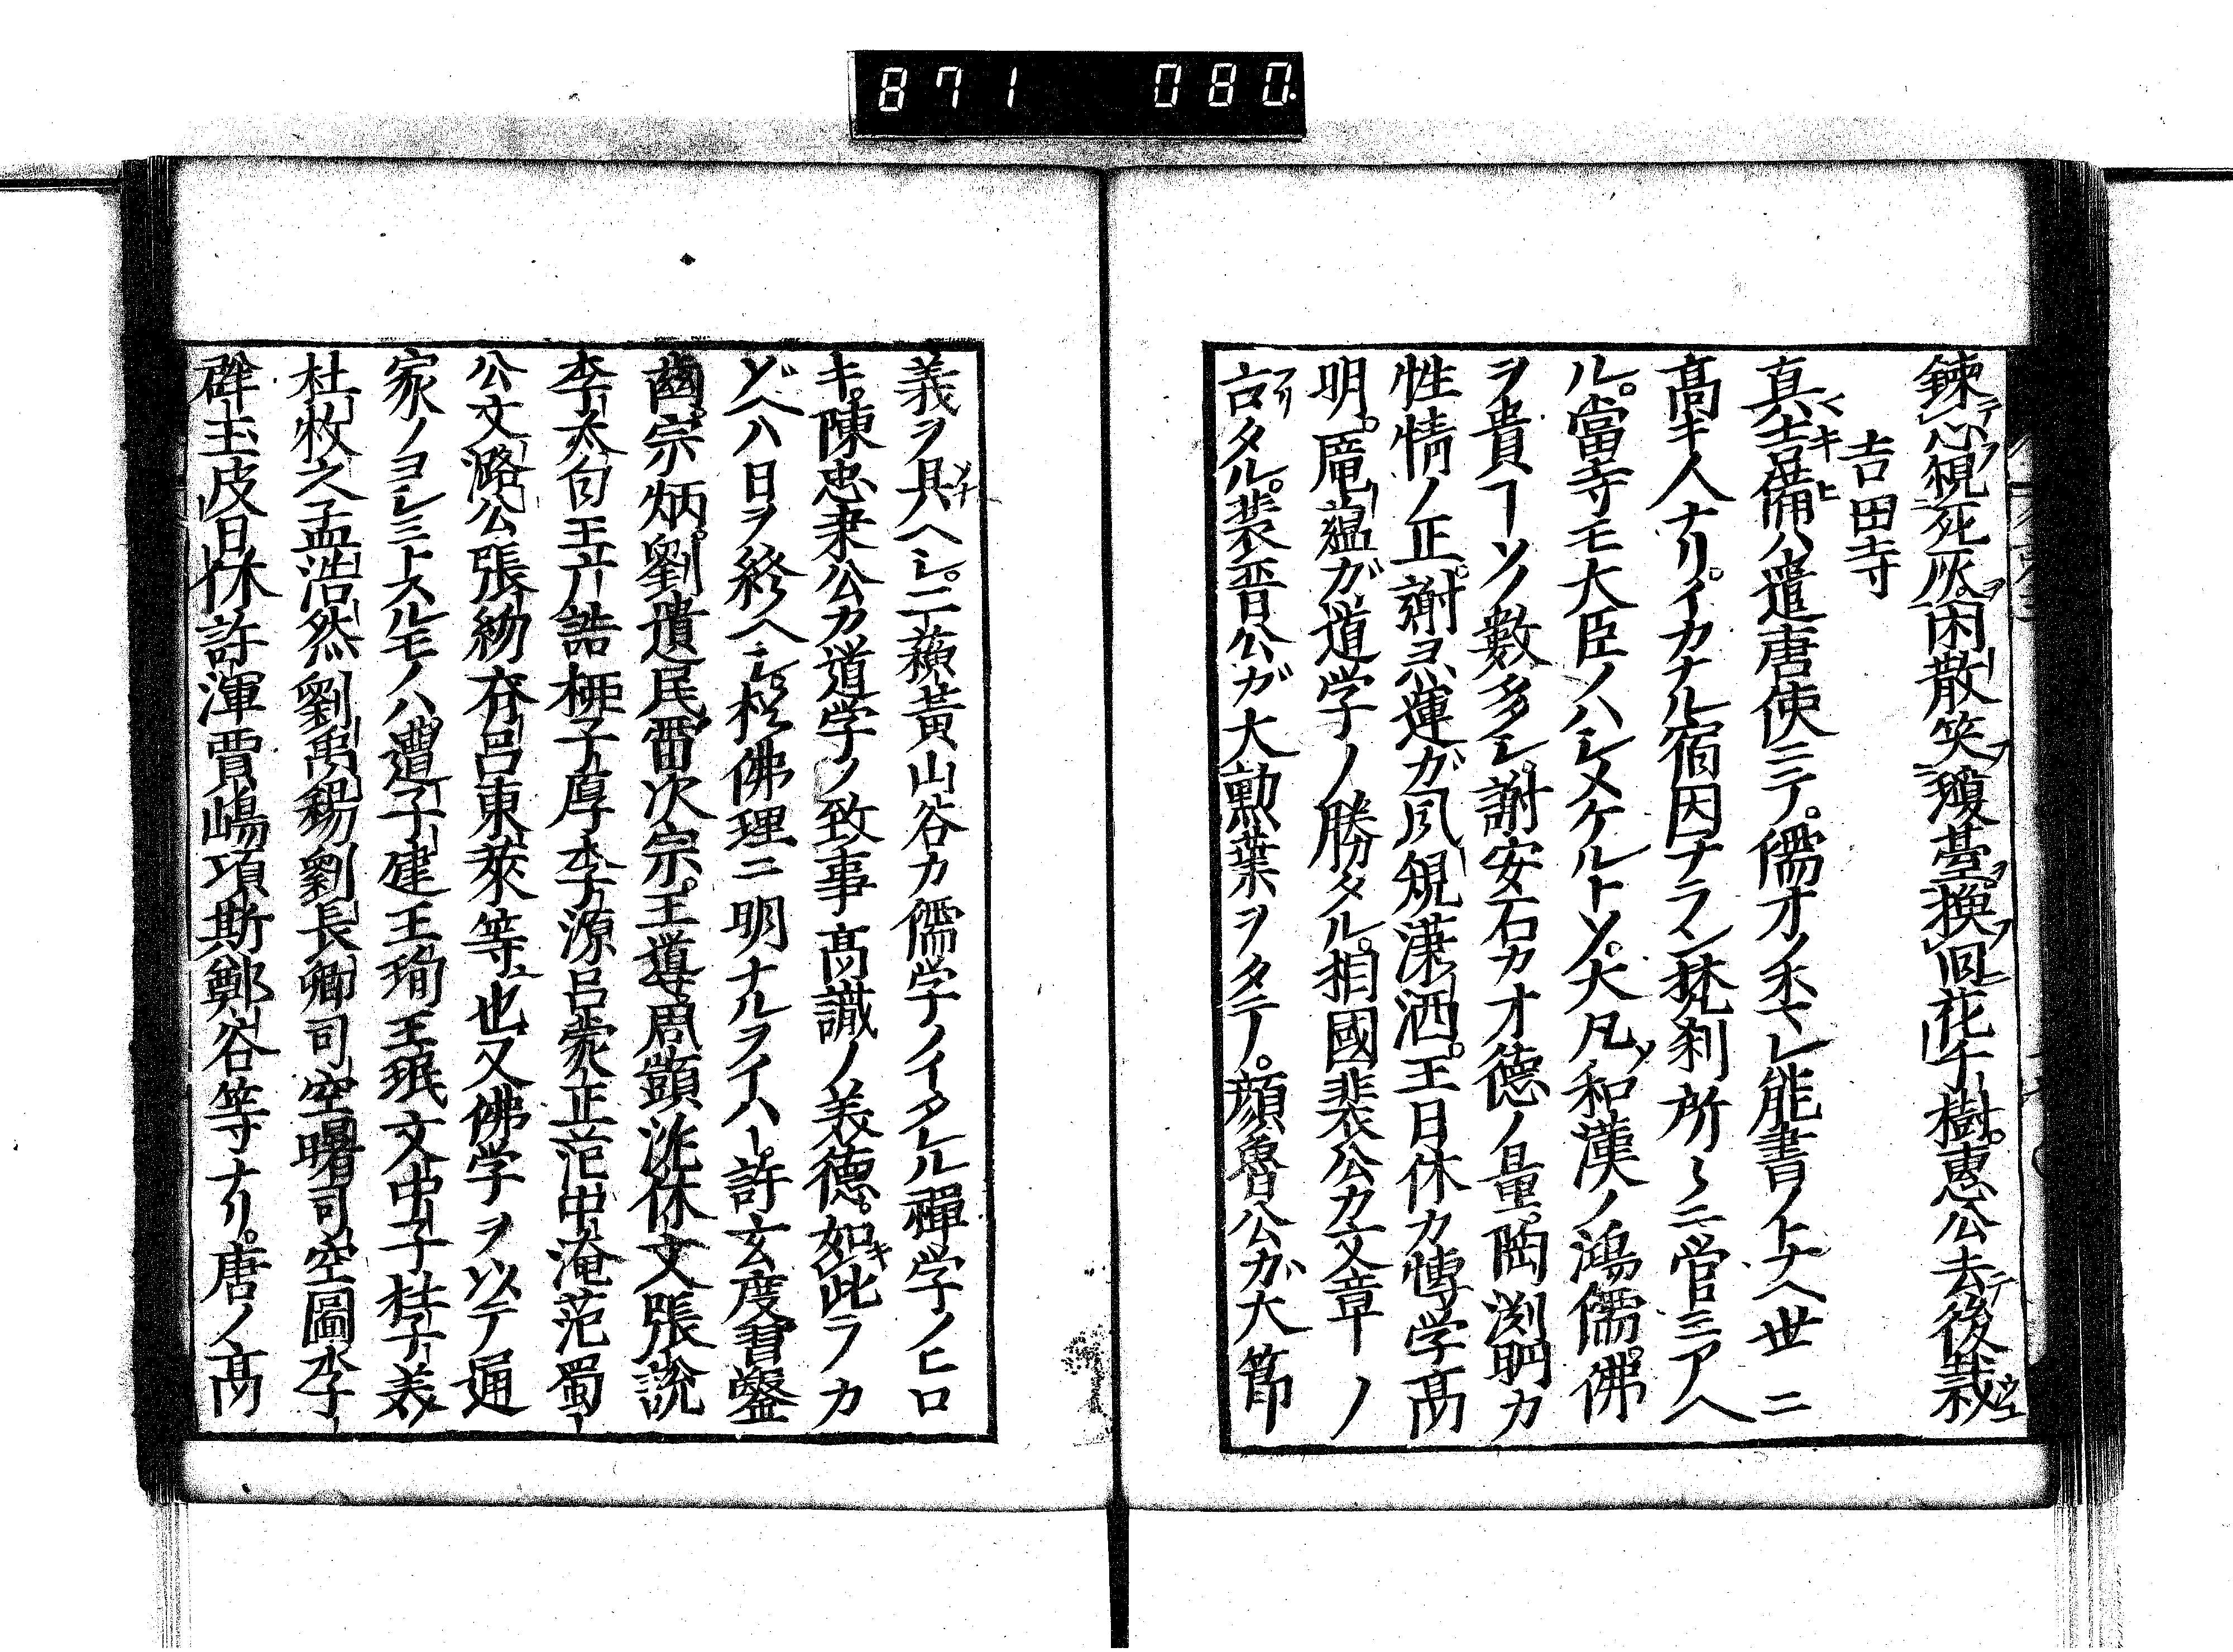 871 080.
錬心視死灰困散笑殘䑓換回花千樹惠公去後栽
吉田寺
真吉備ハ遣唐使ニテ儒才ノホマレ能書ノトナヘ世ニ
髙キ人ナリイカナル宿因ナラン梵刹所〻ニ営ミアヘ
ル當寺モ大臣ノハシメケルトソ大凡和漢ノ鴻儒佛
ヲ貴ーソノ數多シ謝安石カオ德ノ量陶渕明カ
性情ノ正謝灵運ガ風規瀟洒王日休カ博学髙
明龐蕴ガ道学ノ勝タル相國裴公カ文章ーノ
言タル裴晋公ガ大勲業ヲタテノ顔魯公ガ大節
義ヲ具ヘシ二蘓黄山谷カ儒学ノイタル禪学ノヒロ
キ陳忠肅公カ道学ノ致事髙識ノ美德如此ラカ
ゾヘハ日ヲ終ヘシ於佛理ニ明ナルヲイハー許玄度習鑿
齒宗炳劉遺民雷次宗王導周顗沈休文張說
李太白王介甫栁子厚李源呂蒙正范中淹范蜀
公文潞公張紉存呂東萊等也又佛学ヲ以テ通
家ノヨシミトスルモノハ遭子建王珣王珉文中子杜子美
杜牧之孟浩然劉禹錫劉長卿司空曙司空圖李
群玉皮日休許渾賈嶋項斯鄭谷等ナリ唐ノ髙